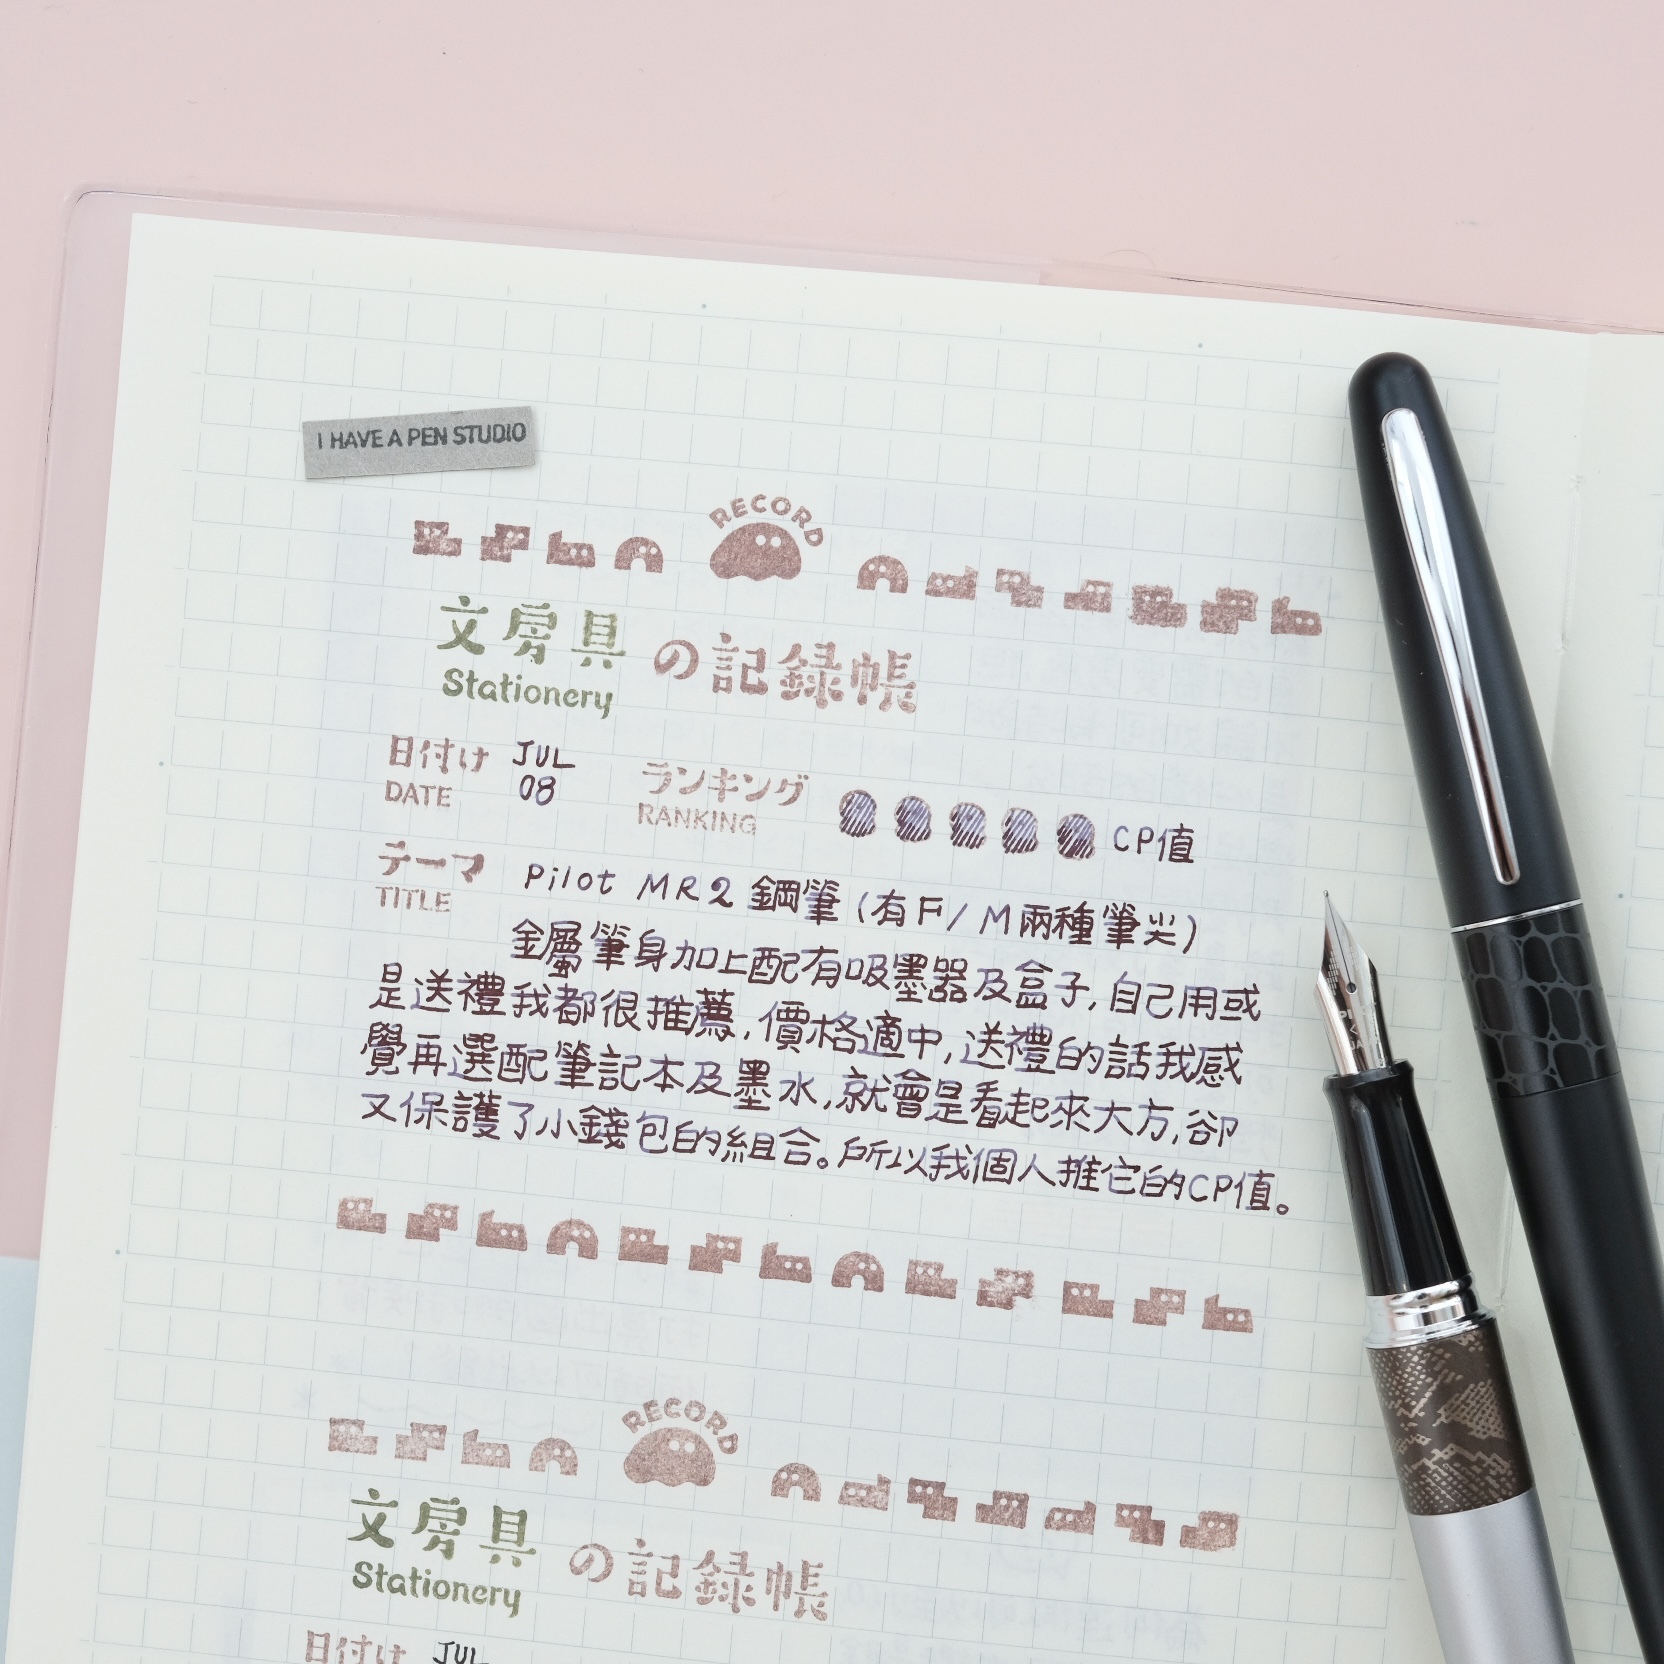 I HAVE A PEN STUDIO
RECORD
文房具の記録帳
Stationery
日付け JUL ランキング
DATE 08 RANKING CP值
テーマ Pilot MR2 鋼筆 (有F/M兩種筆尖)
TITLE
金屬筆身加上配有吸墨器及盒子,自己用或
是送禮我都很推薦,價格適中,送禮的話我感
覺再選配筆記本及墨水,就會是看起來大方,卻
又保護了小錢包的組合。所以我個人推它的CP值。
RECORD
文房具の記録帳
Stationery
日付け JUL